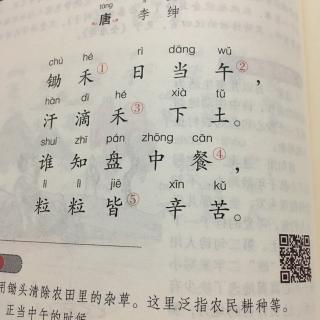 táng
唐 李 绅
chú hé rì dāng wǔ
锄禾①日当午②，
hàn dī hé xià tǔ
汗滴禾③下土。
shuí zhī pán zhōng cān
谁知盘中餐④，
lì lì jiē xīn kǔ
粒粒皆⑤辛苦。
用锄头清除农田里的杂草。这里泛指农民耕种等。
正当中午的时候